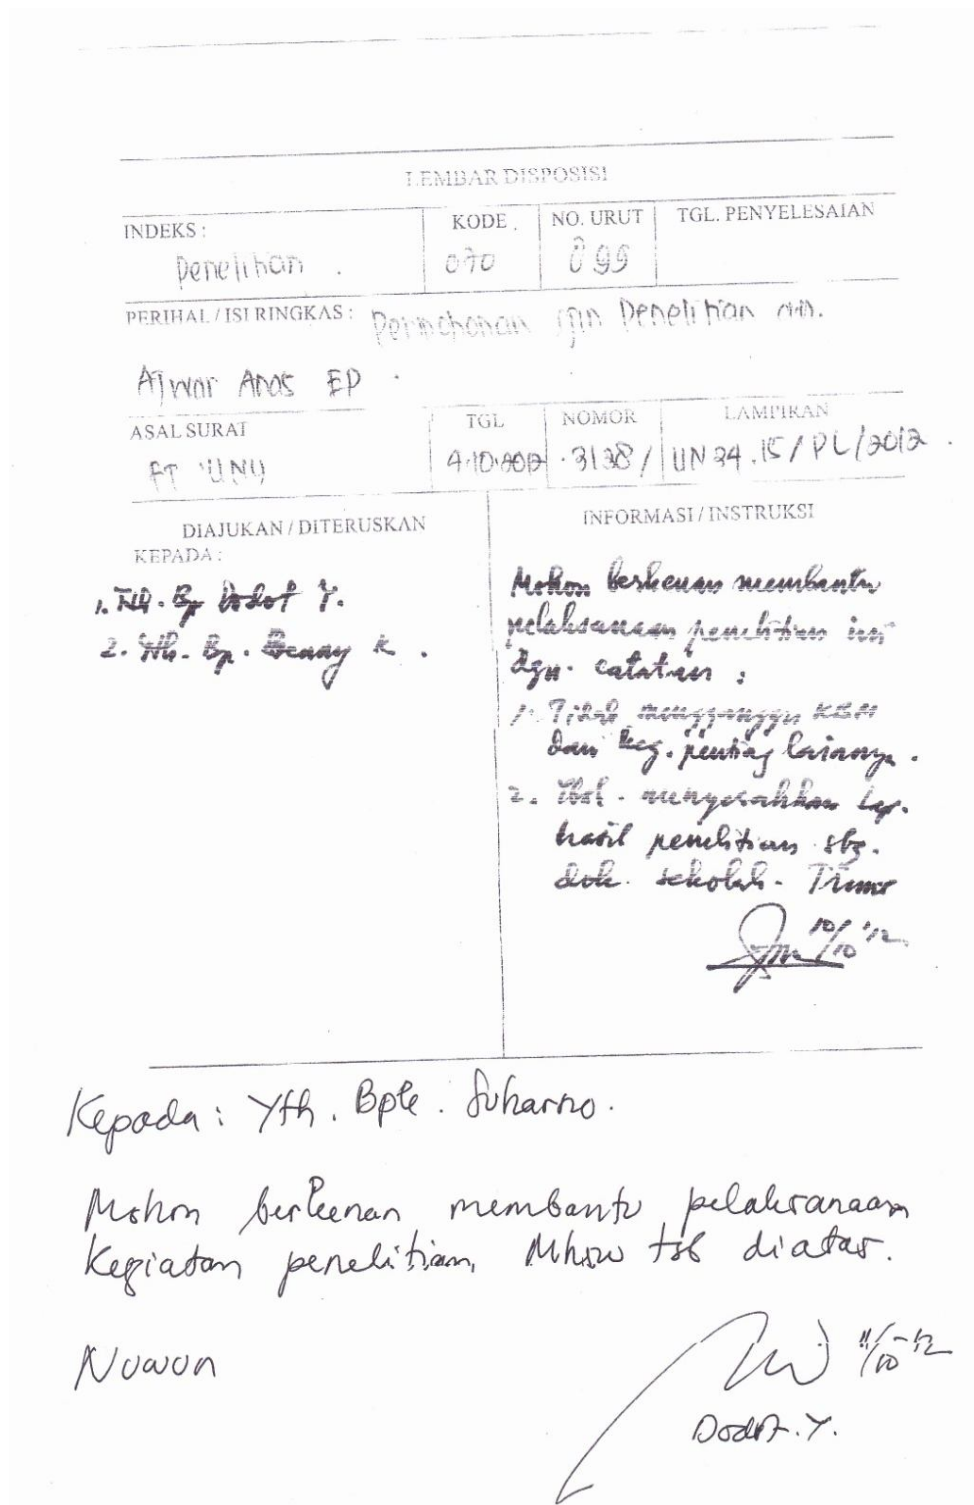 LEMBAR DISPOSISI
INDEKS :
Penelitian .
KODE .
070
NO. URUT
899
TGL. PENYELESAIAN
PERIHAL / ISI RINGKAS : Permohonan Ijin Penelitian an.
Ajwar Anas EP .
ASAL SURAT
FT UNY
TGL
4.10.2012
NOMOR
3138 /
LAMPIRAN
UN 34 .15 / PL / 2012 .
DIAJUKAN / DITERUSKAN
KEPADA :
1. Yth. Bp Dodot Y.
2. Yth. Bp. Benny K .
INFORMASI / INSTRUKSI
Mohon berkenan membantu
pelaksanaan penelitian ini
dgn. catatan :
1. Tidak mengganggu KBM
dan keg. penting lainnya .
2. menyerahkan Lap.
hasil penelitian sbg.
dok. sekolah - Trims
10/10 '12
Kepada : Yth . Bpk . Suharno .
Mohon berkenan membantu pelaksanaan
Kegiatan penelitian, Mhsw tsb diatas.
Nuwun
11/10 - 12
Dodot . Y.